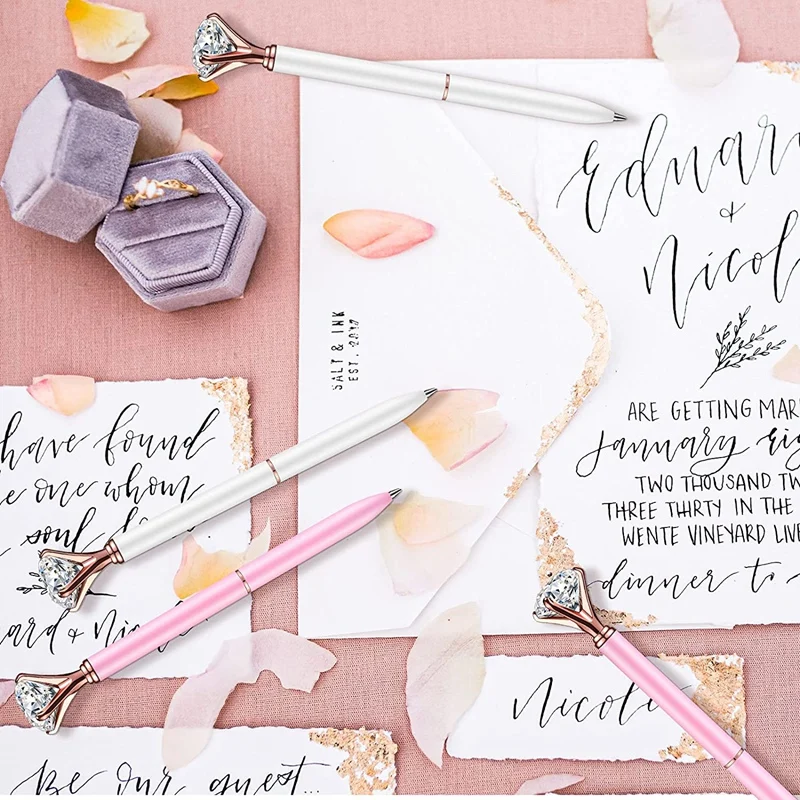 Eduar
+
Nicol
ARE GETTING MAR
January eig
TWO THOUSAND TW
THREE THIRTY IN THE
WENTE VINEYARD LIVE
dinner to
SALT & INK
EST. 2017
have found
e one whom
soul
ard + Ni
Nicole
Be our guest...